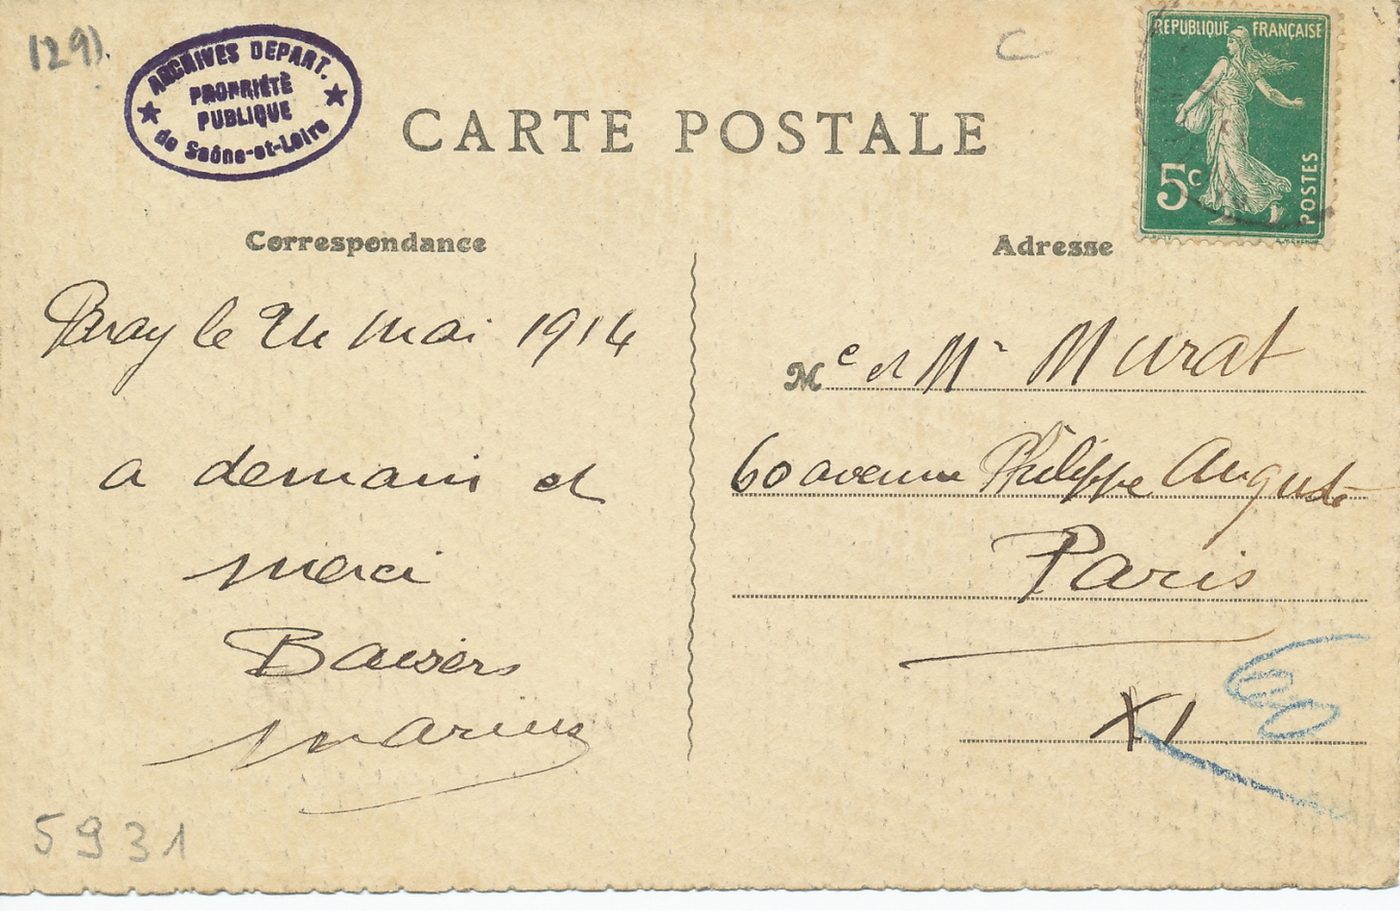 129).
ARCHIVES DEPART.
PROPRIÉTÉ
PUBLIQUE
de Saône-et-Loire
C
REPUBLIQUE FRANÇAISE
5c
POSTES
CARTE POSTALE
Correspondance
Paray le 24 mai 1914
a demain et
merci
Baisers
Marius
5931
Adresse
Me et Mr Murat
60 avenue Philippe Auguste
Paris
XI
60